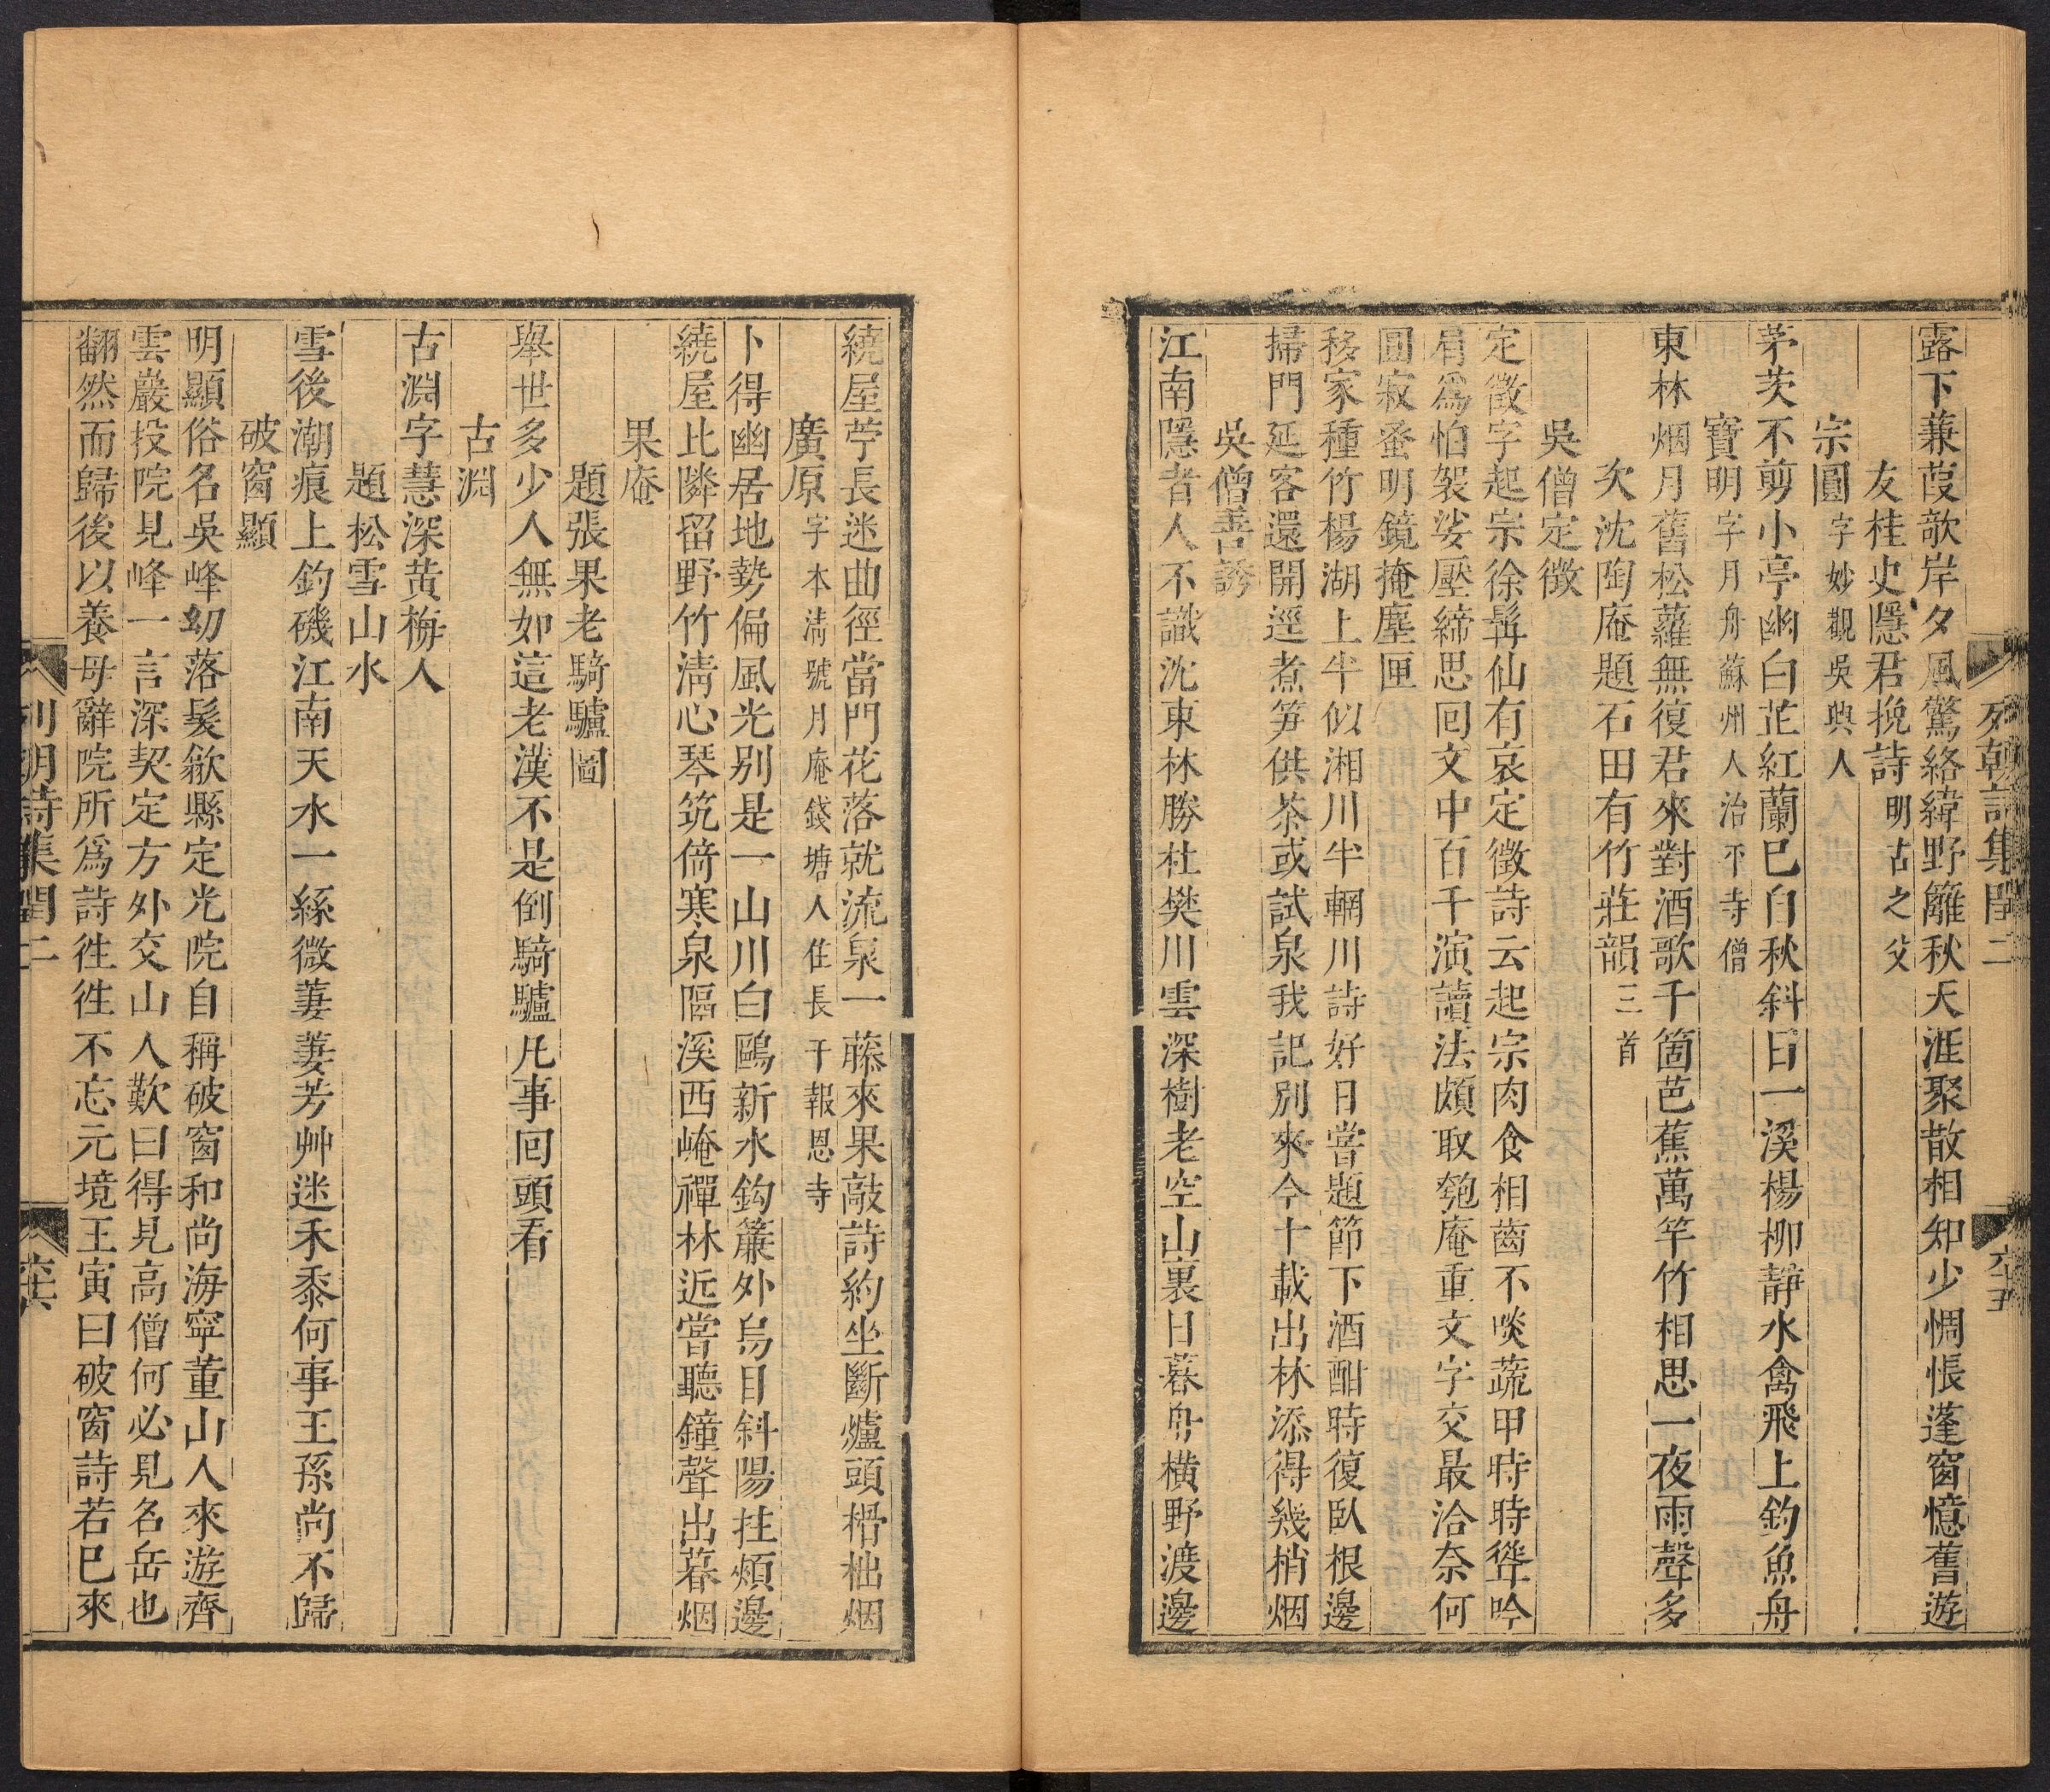 列朝詩集閏二
六五
露下蒹葭欹岸夕風驚絡緯野籬秋天涯聚散相知少惆悵蓬窗憶舊遊
友桂史隱君挽詩明古之父
宗圓字妙觀吳興人
茅茨不剪小亭幽白芷紅蘭已自秋斜日一溪楊柳靜水禽飛上釣魚舟
寶明字月舟蘇州人治平寺僧
東林烟月舊松蘿無復君來對酒歌千箇芭蕉萬竿竹相思一夜雨聲多
次沈陶庵題石田有竹莊韻三首
吳僧定徵
定徵字起宗徐髯仙有哀定徵詩云起宗肉食相齒不啖蔬甲時時聳吟
肩爲怕袈裟壓締思回文中百千演讀法頗取匏庵重文字交最洽奈何
圓寂蚤明鏡掩塵匣
移家種竹楊湖上半似湘川半輞川詩好日嘗題節下酒酣時復臥根邊
掃門延客還開逕煮笋供茶或試泉我記別來今十載出林添得幾梢烟
吳僧善誘
江南隱者人不識沈東林勝杜樊川雲深樹老空山裏日暮舟橫野渡邊
繞屋苧長迷曲徑當門花落就流泉一藤來果敲詩約坐斷爐頭榾柮烟
廣原字本清號月庵錢塘人住長干報恩寺
卜得幽居地勢偏風光别是一山川白鷗新水鈎簾外烏目斜陽拄頰邊
繞屋比隣留野竹淸心琴筑倚寒泉隔溪西崦禪林近嘗聽鐘聲出暮烟
果庵
題張果老騎驢圖
舉世多少人無如這老漢不是倒騎驢凡事回頭看
古淵
古淵字慧深黃梅人
題松雪山水
雪後潮痕上釣磯江南天水一絲微萋萋芳艸迷禾黍何事王孫尚不歸
破窗顯
明顯俗名吳峰幼落髮歙縣定光院自稱破窗和尚海寧董山人來遊齊
雲巖投院見峰一言深契定方外交山人歎曰得見高僧何必見名岳也
翻然而歸後以養母辭院所爲詩徃徃不忘元境王寅曰破窗詩若已來
列朝詩集閏二
六六